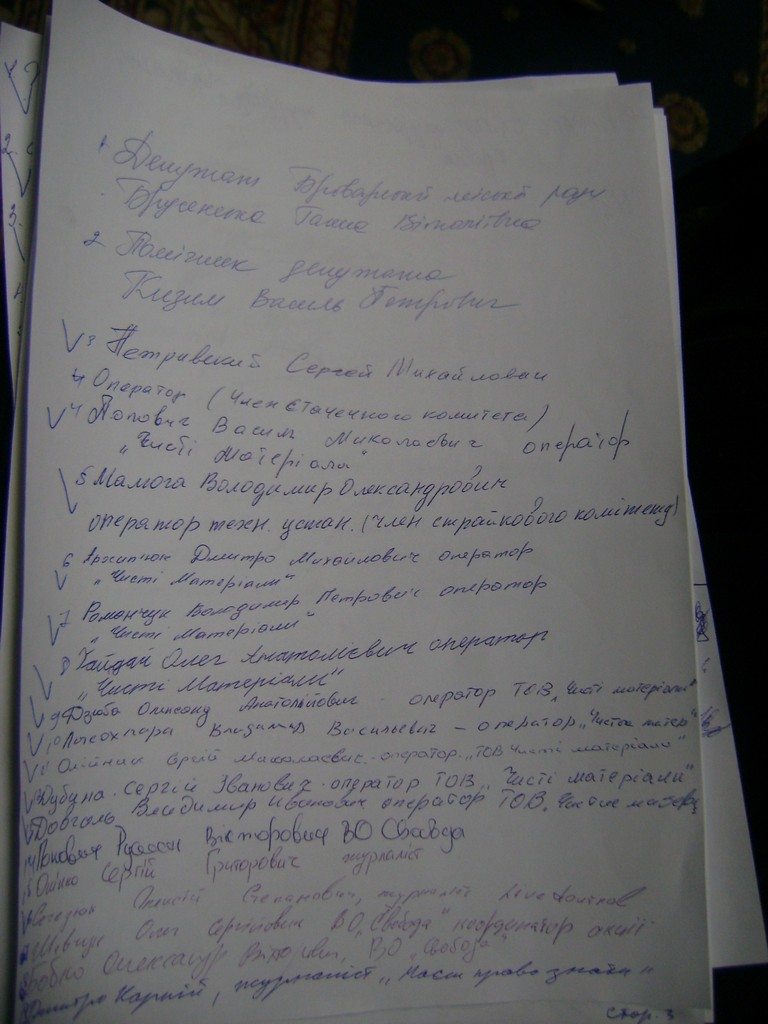 1 Депутат Броварської міської ради
Ганна Віталіївна
2 Помічник депутата
Кизим Василь Петрович
3 Петривский Сергей Михайлович
Оператор (член стачечного комитета)
4 Попович Василь Миколаєвич оператор
„Чисті Матеріали"
5 Мамога Володимир Олександрович
оператор техн. устан. (член страйкового комітету)
6 Архип'юк Дмитро Михайлович оператор
„Чисті Матеріали"
7 Романчук Володимир Петрович оператор
„Чисті Матеріали"
8 Гайдай Олег Анатолієвич оператор
„Чисті Матеріали"
9 Дзюба Олександ Анатолійович оператор ТОВ „Чисті матеріали"
10 Владимир Васильевич – оператор „Чистые матер
11 Олійник Сргій Миколаєвич оператор „ТОВ Чисті матеріали"
Дубина Сергій Іванович оператор ТОВ „Чисті матеріали"
Довгаль Владимир Иванович оператор ТОВ „Чистые матер
14 Попович Руслан Вікторович ВО Свобода
15 Сергій Григорович журналіст
Олексій Степанович, журналіст
Шевчук Олег Сергійович ВО „Свобода" координатор акції
Бобко Олександр Вікторович, ВО „Свобода"
Дмитро Карпій, журналіст „Маєш право знати"
стор. 3